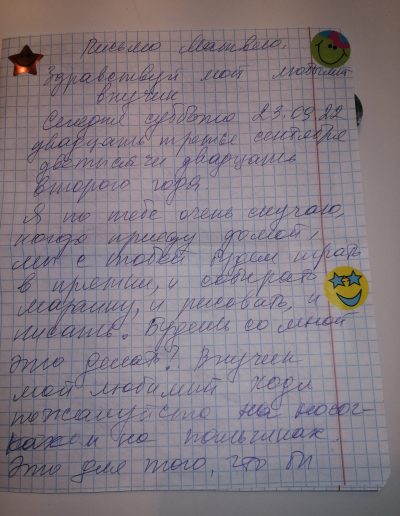 Письмо Матвею.
Здравствуй мой любимый
внучик
Сегодня суббота 23.09.22
двадцать третье сентября
две тысячи двадцать
второго года
Я по тебе очень скучаю,
когда приеду домой,
мы с тобой будем играть
в прятки, и собирать
и рисовать, и
писать. Будешь со мной
это делат? Внучек
мой любимый ходи
пожалуйста на носоч-
ках и на пальчиках.
Это для того, что бы